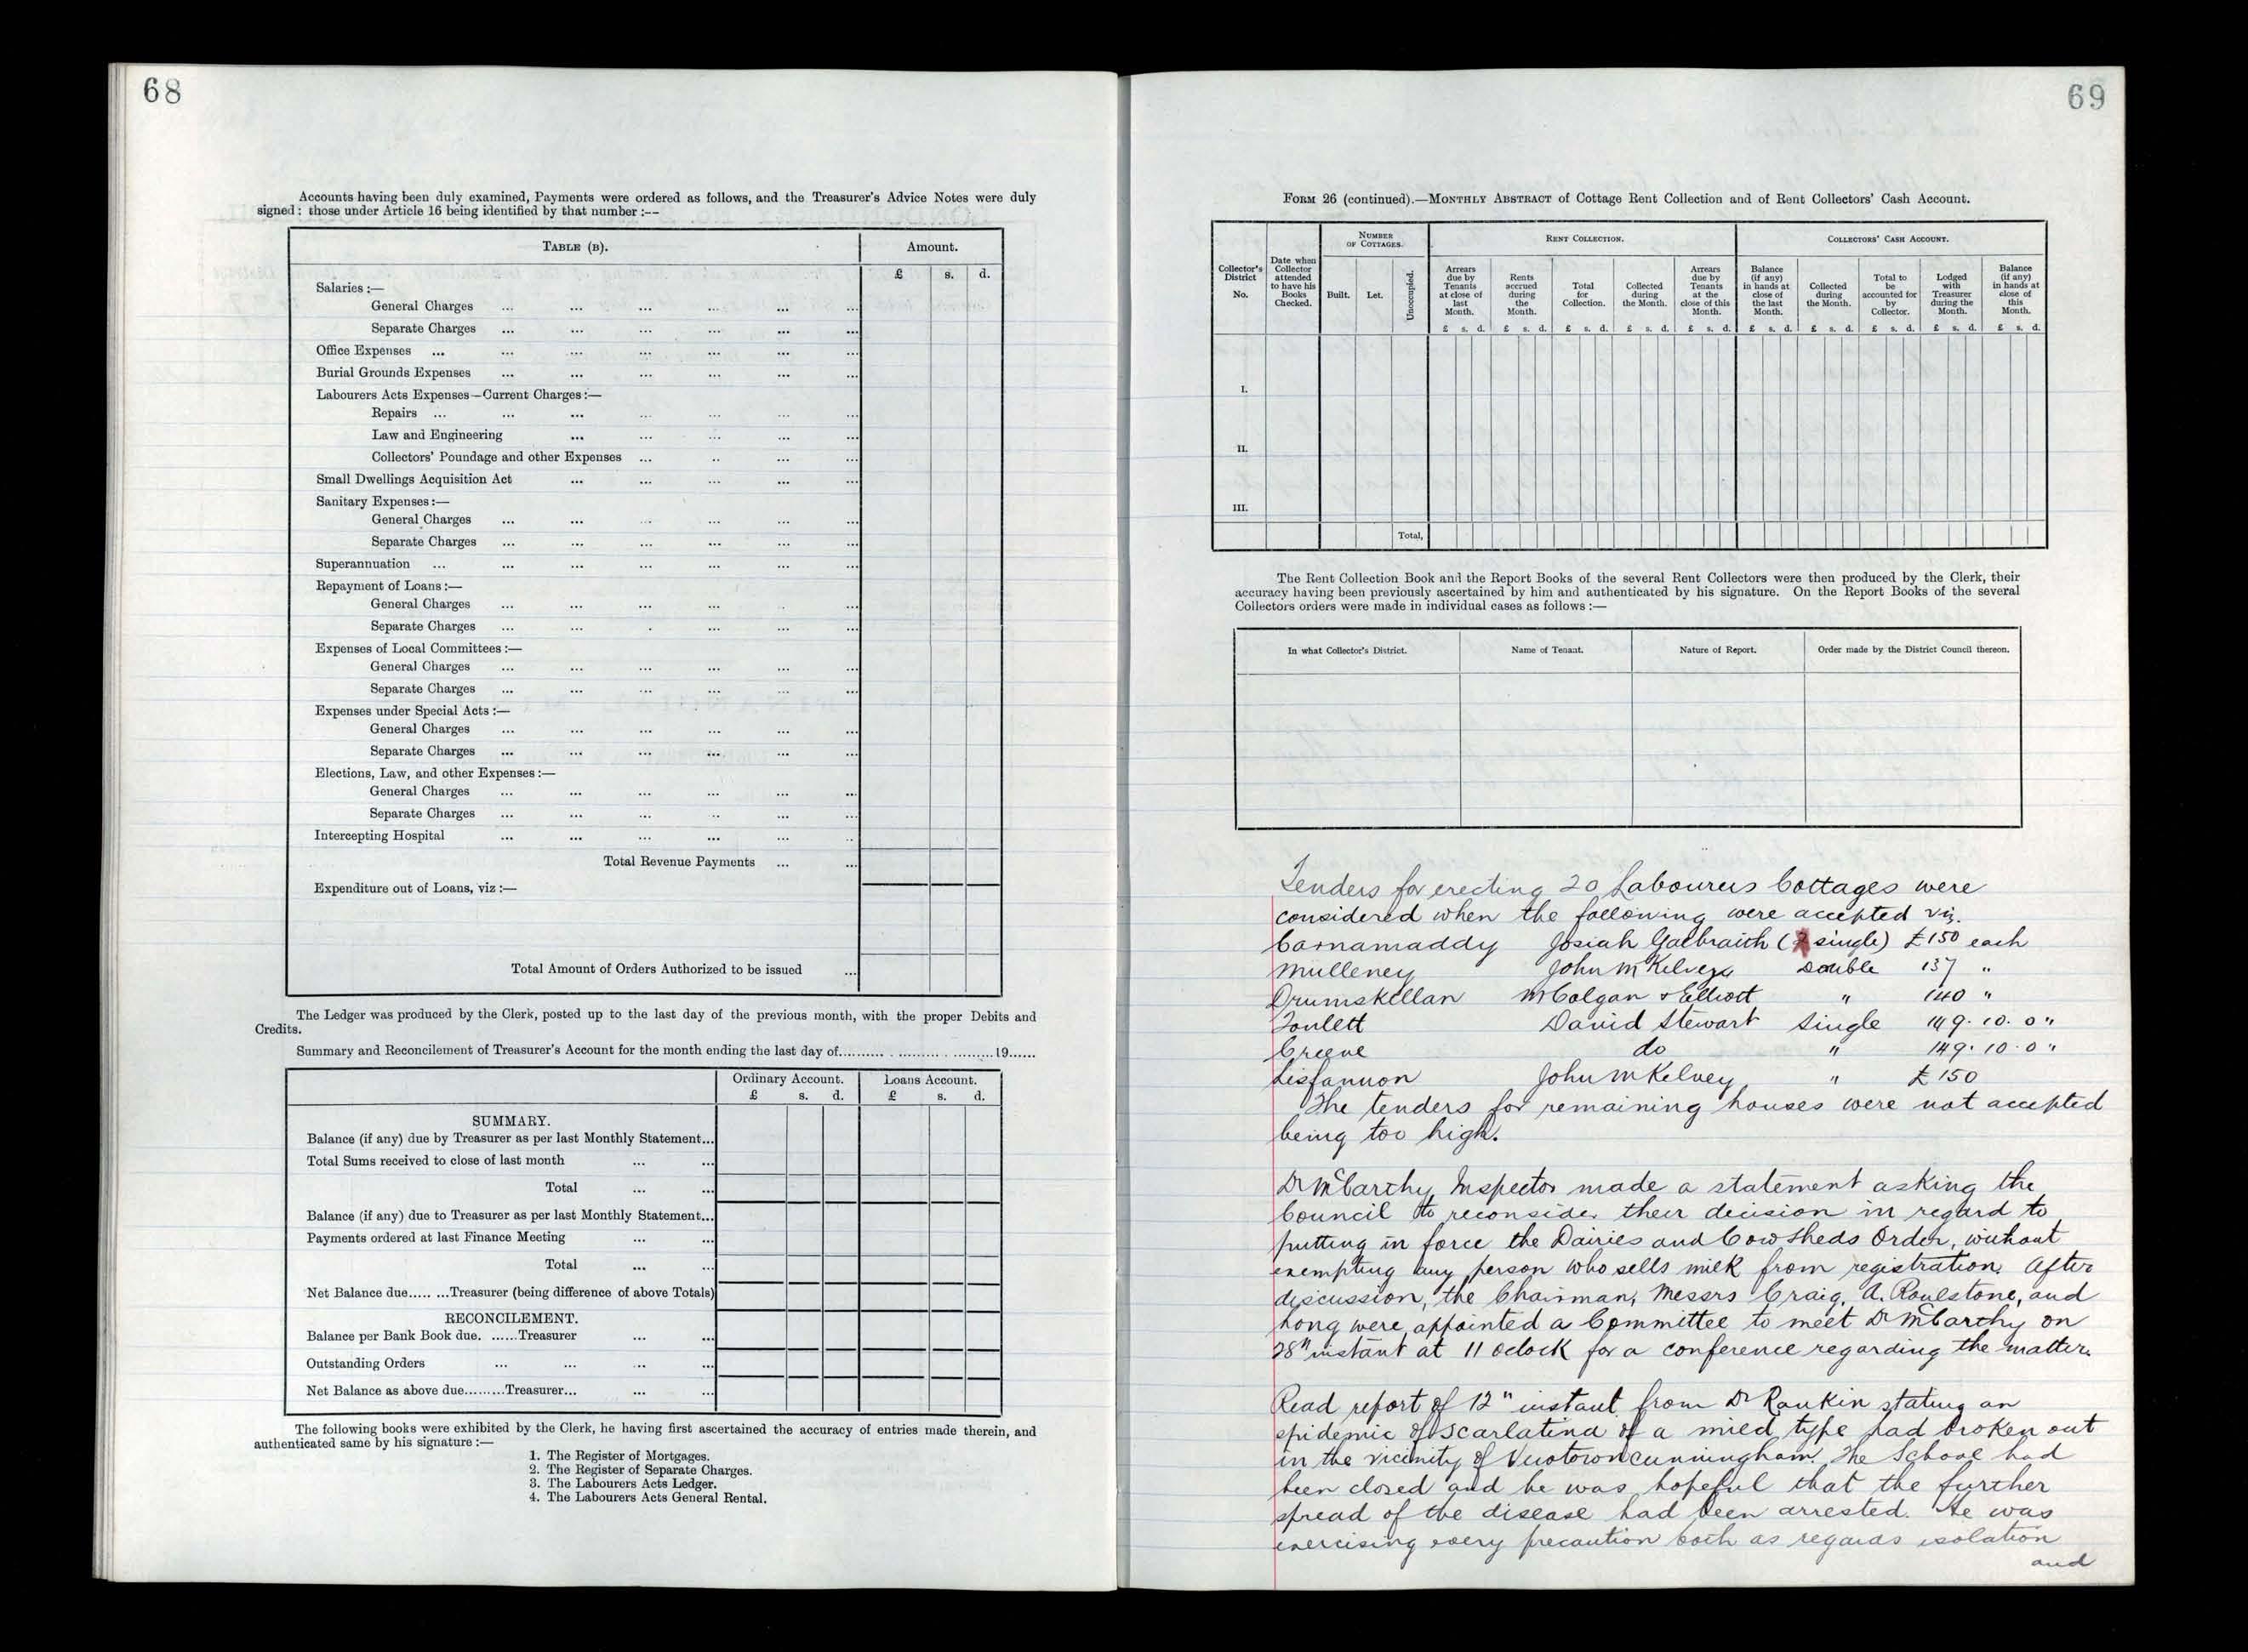 68
Accounts having been duly examined, Payments were ordered as follows, and the Treasurer's Advice Notes were duly
signed: those under Article 16 being identified by that number:--
TABLE (B).
Amount.
£ s. d.
Salaries:—
General Charges ... ... ... ... ... ...
Separate Charges ... ... ... ... ... ...
Office Expenses ... ... ... ... ... ... ...
Burial Grounds Expenses ... ... ... ... ... ...
Labourers Acts Expenses—Current Charges:—
Repairs ... ... ... ... ... ... ...
Law and Engineering ... ... ... ... ...
Collectors' Poundage and other Expenses ... .. ... ...
Small Dwellings Acquisition Act ... ... ... ... ...
Sanitary Expenses:—
General Charges ... ... ... ... ... ...
Separate Charges ... ... ... ... ... ...
Superannuation ... ... ... ... ... ... ...
Repayment of Loans:—
General Charges ... ... ... ... . ...
Separate Charges ... ... . ... ... ...
Expenses of Local Committees:—
General Charges ... ... ... ... ... ...
Separate Charges ... ... ... ... ... ...
Expenses under Special Acts:—
General Charges ... ... ... ... ... ...
Separate Charges ... ... ... ... ... ...
Elections, Law, and other Expenses:—
General Charges ... ... ... ... ... ...
Separate Charges ... ... ... .. ... ...
Intercepting Hospital ... ... ... ... ... ..
Total Revenue Payments ... ...
Expenditure out of Loans, viz:—
Total Amount of Orders Authorized to be issued ...
The Ledger was produced by the Clerk, posted up to the last day of the previous month, with the proper Debits and
Credits.
Summary and Reconcilement of Treasurer's Account for the month ending the last day of..............................19......
Ordinary Account. Loans Account.
£ s. d. £ s. d.
SUMMARY.
Balance (if any) due by Treasurer as per last Monthly Statement...
Total Sums received to close of last month ... ...
Total ... ...
Balance (if any) due to Treasurer as per last Monthly Statement...
Payments ordered at last Finance Meeting ... ...
Total ... ...
Net Balance due..... ...Treasurer (being difference of above Totals)
RECONCILEMENT.
Balance per Bank Book due. ......Treasurer ... ...
Outstanding Orders ... ... ... ...
Net Balance as above due.........Treasurer... ... ...
The following books were exhibited by the Clerk, he having first ascertained the accuracy of entries made therein, and
authenticated same by his signature:—
1. The Register of Mortgages.
2. The Register of Separate Charges.
3. The Labourers Acts Ledger.
4. The Labourers Acts General Rental.
69
FORM 26 (continued).—MONTHLY ABSTRACT of Cottage Rent Collection and of Rent Collectors' Cash Account.
Collector's District No.
Date when Collector attended to have his Books Checked.
NUMBER OF COTTAGES.
Built. Let. Unoccupied.
RENT COLLECTION.
Arrears due by Tenants at close of last Month.
Rents accrued during the Month.
Total for Collection.
Collected during the Month.
Arrears due by Tenants at the close of this Month.
COLLECTORS' CASH ACCOUNT.
Balance (if any) in hands at close of the last Month.
Collected during the Month.
Total to be accounted for by Collector.
Lodged with Treasurer during the Month.
Balance (if any) in hands at close of this Month.
£ s. d. £ s. d. £ s. d. £ s. d. £ s. d. £ s. d. £ s. d. £ s. d. £ s. d. £ s. d.
I.
II.
III.
Total,
The Rent Collection Book and the Report Books of the several Rent Collectors were then produced by the Clerk, their
accuracy having been previously ascertained by him and authenticated by his signature. On the Report Books of the several
Collectors orders were made in individual cases as follows:—
In what Collector's District. Name of Tenant. Nature of Report. Order made by the District Council thereon.
Tenders for erecting 20 Labourers Cottages were
considered when the following were accepted viz.
Carnamaddy Josiah Galbraith (2 single) £150 each
Mulleney John McKelvey Double 137 "
Drumskellan McColgan & Elliott " 140 "
Toulett David Stewart Single 149. 10. 0 "
Creeve do " 149. 10. 0 "
Lisfannon John McKelvey " £150
The tenders for remaining houses were not accepted
being too high.
Dr McCarthy, Inspector made a statement asking the
Council to reconsider their decision in regard to
putting in force the Dairies and Cow Sheds Order, without
exempting any person who sells milk from registration. After
discussion, the Chairman, Messrs Craig, A. Roulstone, and
Long were appointed a Committee to meet Dr McCarthy on
28th instant at 11 Oclock for a conference regarding the matter.
Read report of 12" instant from Dr Rankin stating an
epidemic of scarlatina of a mild type had broken out
in the vicinity of Newtowncunningham. The School had
been closed and he was hopeful that the further
spread of the disease had been arrested. He was
exercising every precaution both as regards isolation
and